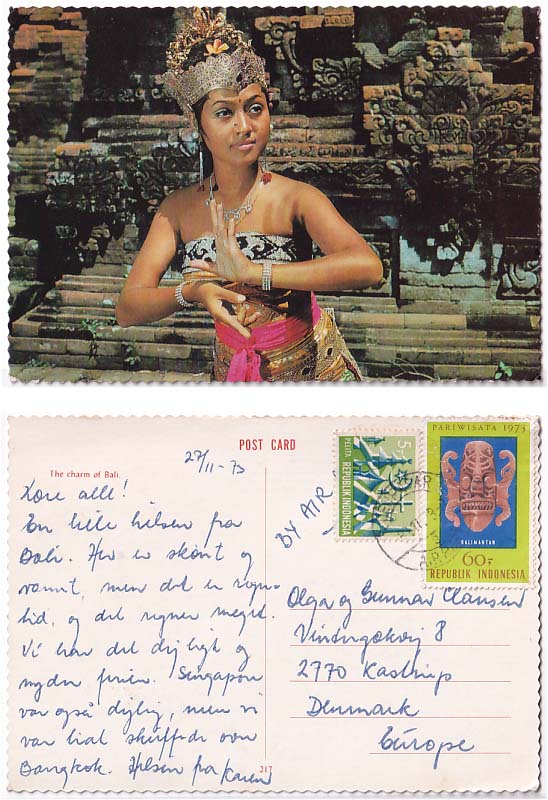 POST CARD
27/11-73
The charm of Bali.
Kære alle!
En lille hilsen fra
Bali. Her er skønt og
varmt, men det er regn-
tid, og det regner meget.
Vi har det dejligt og
nyder ferien. Singapore
var også dejlig, men vi
var lidt skuffede over
Bangkok. Hilsen fra Karen
217
BY AIR
5,-
PELITA
REPUBLIK INDONESIA
PARIWISATA 1973
KALIMANTAN
60,-
REPUBLIK INDONESIA
Olga og Gunnar Hansen
8
2770 Kastrup
Denmark
Europe